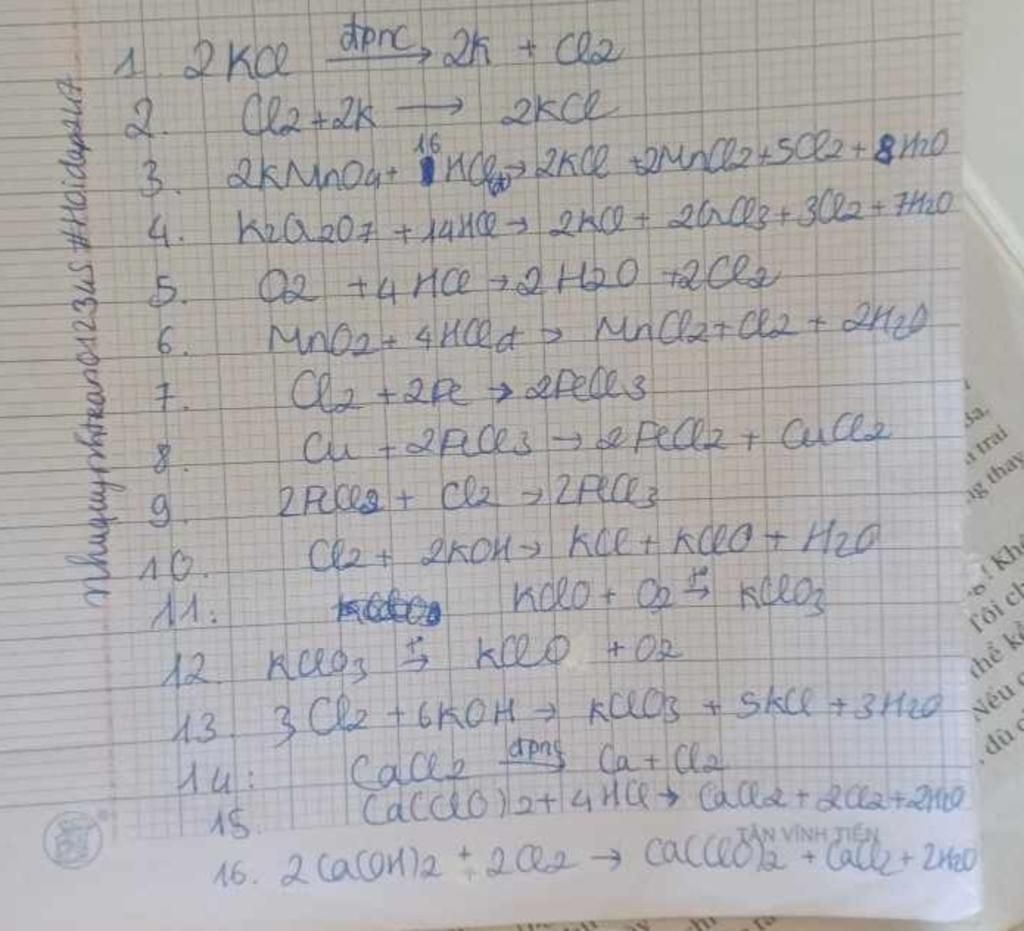 1. 2KCl đpnc→ 2K + Cl2
2. Cl2 + 2K → 2KCl
3. 2KMnO4 + 16 HClđ → 2KCl + 2MnCl2 + 5Cl2 + 8H2O
4. K2Cr2O7 + 14HCl → 2KCl + 2CrCl3 + 3Cl2 + 7H2O
5. O2 + 4HCl → 2H2O + 2Cl2
6. MnO2 + 4HClđ → MnCl2 + Cl2 + 2H2O
7. Cl2 + 2Fe → 2FeCl3
8. Cu + 2FeCl3 → 2FeCl2 + CuCl2
9. 2FeCl2 + Cl2 → 2FeCl3
10. Cl2 + 2KOH → KCl + KClO + H2O
11: KClO + O2 ⇆ KClO3
12 KClO3 ⇆ KClO + O2
13. 3Cl2 + 6KOH → KClO3 + 5KCl + 3H2O
14: CaCl2 đpnc→ Ca + Cl2
15. Ca(ClO)2 + 4HCl → CaCl2 + 2Cl2 + 2H2O
TÂN VĨNH TIẾN
16. 2Ca(OH)2 + 2Cl2 → Ca(ClO)2 + CaCl2 + 2H2O
#Hoidap247
3a.
trai
thay
! Khô
Tôi ch
thể kê
Nếu
dù